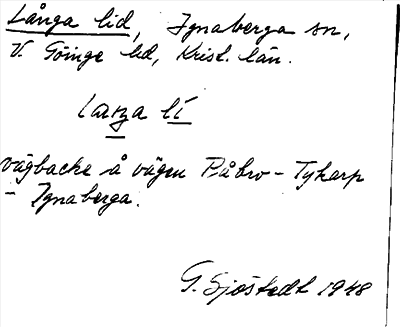 Långa lid, Ignaberga sn,
V. Göinge hd, Krist. län.
laŋa lí
vägbacke å vägen Båbro - Tykarp
- Ignaberga.
G. Sjöstedt 1948